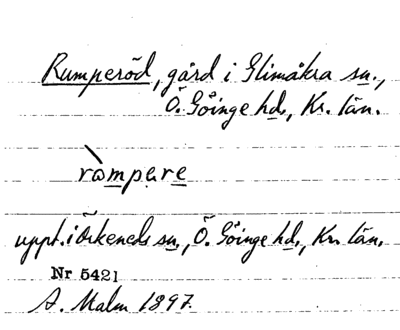 Rumperöd, gård i Glimåkra sn.,
Ö. Göinge hd., Kr. län.
rompere
uppt. i Örkeneds sn., Ö. Göinge hd., Kr. län.
Nr 5421
A. Malm 1897.